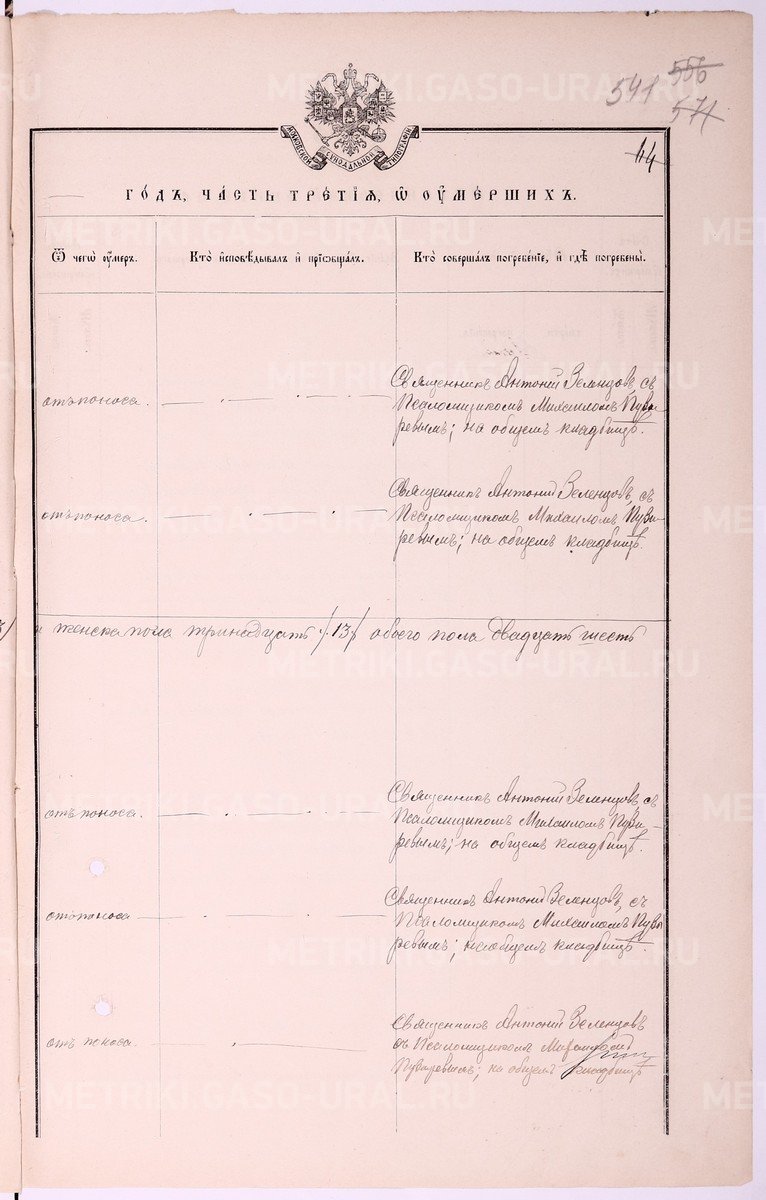 541 556
571
44
МОСКОВСКОЙ СѴНОДАЛЬНОЙ ТИПОГРАФІИ
ГОДЪ, ЧАСТЬ ТРЕТІЯ, Ѡ ОУМЕРШИХЪ.
Ѿ чегѡ оумеръ.
Кто исповѣдывалъ и пріѡбщалъ.
Кто совершалъ погребеніе, и гдѣ погребены.
отъ поноса.
Священникъ Антоній Зеленцовъ, съ
Псаломщикомъ Михаиломъ Пузы-
ревымъ; на общемъ кладбищѣ.
отъ поноса.
Священникъ Антоній Зеленцовъ, съ
Псаломщикомъ Михаиломъ Пузы-
ревымъ; на общемъ кладбищѣ.
и женска пола тринадцать /13/ обоего пола двадцать шесть
отъ поноса.
Священникъ Антоній Зеленцовъ, съ
Псаломщикомъ Михаиломъ Пузы-
ревымъ; на общемъ кладбищѣ.
отъ поноса
Священникъ Антоній Зеленцовъ, съ
Псаломщикомъ Михаиломъ Пузы
ревымъ; на общемъ кладбищѣ
отъ поноса.
Священникъ Антоній Зеленцовъ
съ Псаломщикомъ Михаиломъ
Пузыревымъ; на общемъ кладбищѣ
METRIKI.GASO-URAL.RU